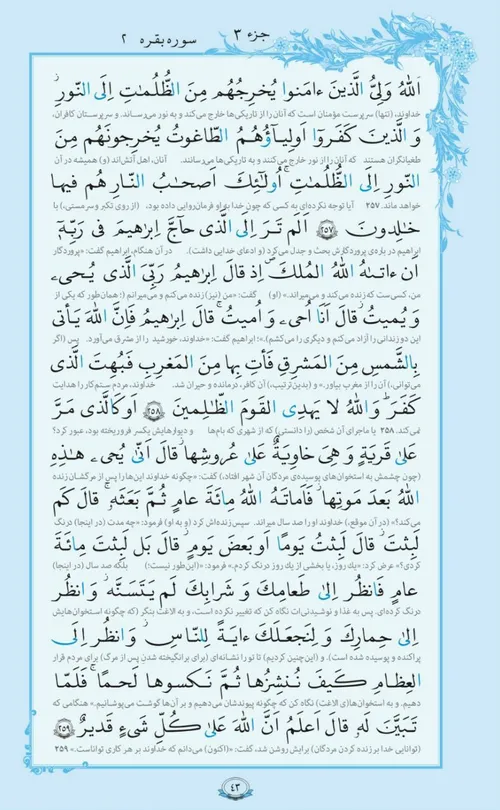 جزء ۳
سوره بقره ۲
اَللهُ وَلِیُّ الَّذینَ ءامَنوا یُخرِجُهُم مِنَ الظُّلُمٰتِ اِلَی النّورِ ۖ
خداوند، (تنها) سرپرست مؤمنان است که آنان را از تاریکی‌ها خارج می‌کند و به نور می‌رساند. و سرپرستان کافران،
وَ الَّذینَ کَفَروٓا اَولِیآؤُهُمُ الطّاغوتُ یُخرِجونَهُم مِنَ
طغیانگران هستند که آنان را از نور خارج می‌کنند و به تاریکی‌ها می‌رسانند. آنان، اهل آتش‌اند (و) همیشه در آن
النّورِ اِلَی الظُّلُمٰتِ ۗ اُولٰٓئِکَ اَصحٰبُ النّارِ هُم فیها
خواهند ماند. ۲۵۷ آیا توجه نکرده‌ای به کسی که چون خدا به او فرمان‌روایی داده بود، (از روی تکبر و سرمستی،) با
خٰلِدونَ ﴿۲۵۷﴾ اَلَم تَرَ اِلَی الَّذی حآجَّ اِبرٰهیمَ فی رَبِّهٓ
ابراهیم در باره‌ی پروردگارش بحث و جدل می‌کرد (و ادعای خدایی داشت). در آن هنگام، ابراهیم گفت: «پروردگار
اَن ءاتٰىهُ اللهُ المُلکَ ۘ اِذ قالَ اِبرٰهیمُ رَبِّیَ الَّذی یُحیۦ
من، کسی‌ست که زنده می‌کند و می‌میراند.» (او) گفت: «من (نیز) زنده می‌کنم و می‌میرانم (؛ همان‌طور که یکی از
وَ یُمیتُ ۙ قالَ اَنَا اُحیۦ وَ اُمیتُ ۖ قالَ اِبرٰهیمُ فَاِنَّ اللهَ یَأتی
این دو زندانی را آزاد می‌کنم و دیگری را می‌کشم).»؛ ابراهیم گفت: «خداوند، خورشید را از مشرق می‌آورد. پس (اگر
بِالشَّمسِ مِنَ المَشرِقِ فَأتِ بِها مِنَ المَغرِبِ فَبُهِتَ الَّذی
می‌توانی،) آن را از مغرب بیاور.» و (بدین‌ترتیب،) آن کافر، درمانده و حیران شد. خداوند، مردم ستم‌کار را هدایت
کَفَرَ ۗ وَ اللهُ لا یَهدِی القَومَ الظّٰلِمینَ ﴿۲۵۸﴾ اَو کَالَّذی مَرَّ
نمی‌کند. ۲۵۸ یا ماجرای آن شخص را (دانستی) که از شهری که بام‌ها و دیوارهایش یکسر فروریخته بود، عبور کرد؟
عَلیٰ قَریَةٍ وَ هِیَ خاوِیَةٌ عَلیٰ عُروشِها ۚ قالَ اَنّیٰ یُحیۦ هٰذِهِ
(چون چشمش به استخوان‌های پوسیده‌ی مردگان آن شهر افتاد،) گفت: «چگونه خداوند این‌ها را پس از مرگشان زنده
اللهُ بَعدَ مَوتِها ۖ فَاَماتَهُ اللهُ مِائَةَ عامٍ ثُمَّ بَعَثَهٗ ۖ قالَ کَم
می‌کند؟» (در آن موقع،) خداوند او را صد سال میراند. سپس زنده‌اش کرد (و به او) فرمود: «چه مدت (در اینجا) درنگ
لَبِثتَ ۖ قالَ لَبِثتُ یَومًا اَو بَعضَ یَومٍ ۖ قالَ بَل لَبِثتَ مِائَةَ
کردی؟» عرض کرد: «یک روز، یا بخشی از یک روز درنگ کردم.» فرمود: «(این‌طور نیست؛) بلکه صد سال (در اینجا)
عامٍ فَانظُر اِلیٰ طَعامِکَ وَ شَرابِکَ لَم یَتَسَنَّه ۖ وَ انظُر
درنگ کرده‌ای. پس به غذا و نوشیدنی‌ات نگاه کن که تغییر نکرده است، و به الاغت بنگر (که چگونه استخوان‌هایش
اِلیٰ حِمارِکَ وَ لِنَجعَلَکَ ءایَةً لِلنّاسِ ۖ وَ انظُر اِلَی
پراکنده و پوسیده شده است). و (این‌چنین کردیم) تا تو را نشانه‌ای (برای برانگیخته شدن پس از مرگ) برای مردم قرار
العِظامِ کَیفَ نُنشِزُها ثُمَّ نَکسوها لَحمًا ۚ فَلَمّا
دهیم. و به استخوان‌ها(ی الاغت) نگاه کن که چگونه پیوندشان می‌دهیم و بر آن‌ها گوشت می‌پوشانیم.» هنگامی که
تَبَیَّنَ لَهٗ قالَ اَعلَمُ اَنَّ اللهَ عَلیٰ کُلِّ شَیءٍ قَدیرٌ ﴿۲۵۹﴾
(توانایی خدا بر زنده کردن مردگان) برایش روشن شد، گفت: «(اکنون) می‌دانم که خداوند بر هر کاری تواناست.» ۲۵۹
۴۳